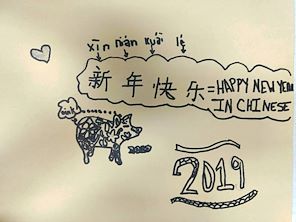 xīn nián kuài lè
新年快乐=HAPPY NEW YEAR
IN CHINESE
oink
2019